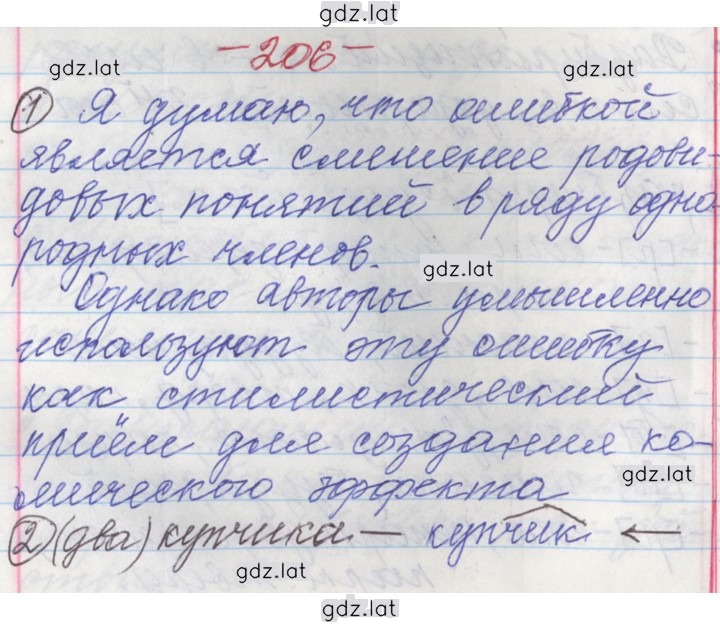 gdz.lat
-206-
gdz.lat
gdz.lat
① Я думаю, что ошибкой
является смешение родови-
довых понятий в ряду одно-
родных членов.
gdz.lat
Однако авторы умышленно
используют эту ошибку
как стилистический
приём для создания ко-
gdz.lat
мического эффекта
② (два) купчика — купчик ←
gdz.lat
gdz.lat